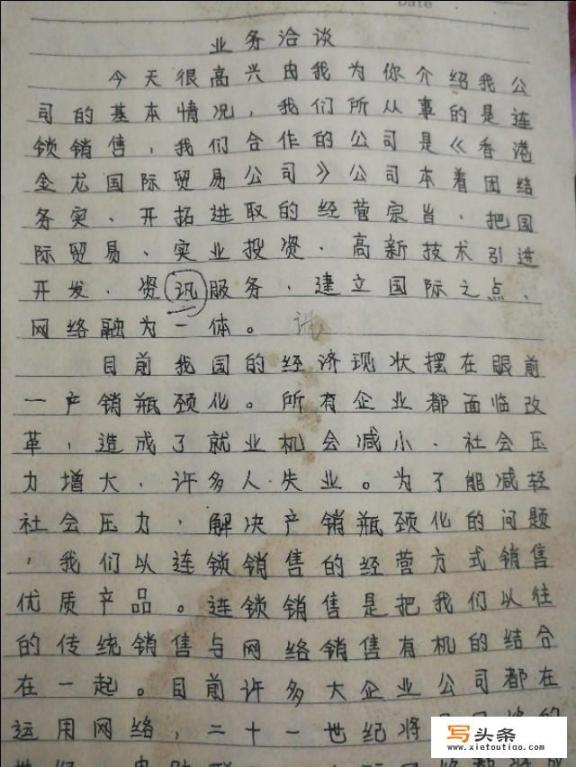 Date
业务洽谈
今天很高兴由我为你介绍我公
司的基本情况，我们所从事的是连
锁销售，我们合作的公司是《香港
金龙国际贸易公司》公司本着团结
务实、开拓进取的经营宗旨，把国
际贸易、实业投资、高新技术引进
开发、资讯服务，建立国际之点、
网络融为一体。
目前我国的经济现状摆在眼前
一产销瓶颈化。所有企业都面临改
革，造成了就业机会减小、社会压
力增大，许多人失业。为了能减轻
社会压力，解决产销瓶颈化的问题
，我们以连锁销售的经营方式销售
优质产品。连锁销售是把我们以往
的传统销售与网络销售有机的结合
在一起。目前许多大企业公司都在
运用网络，二十一世纪将
写头条
www.xietoutiao.com